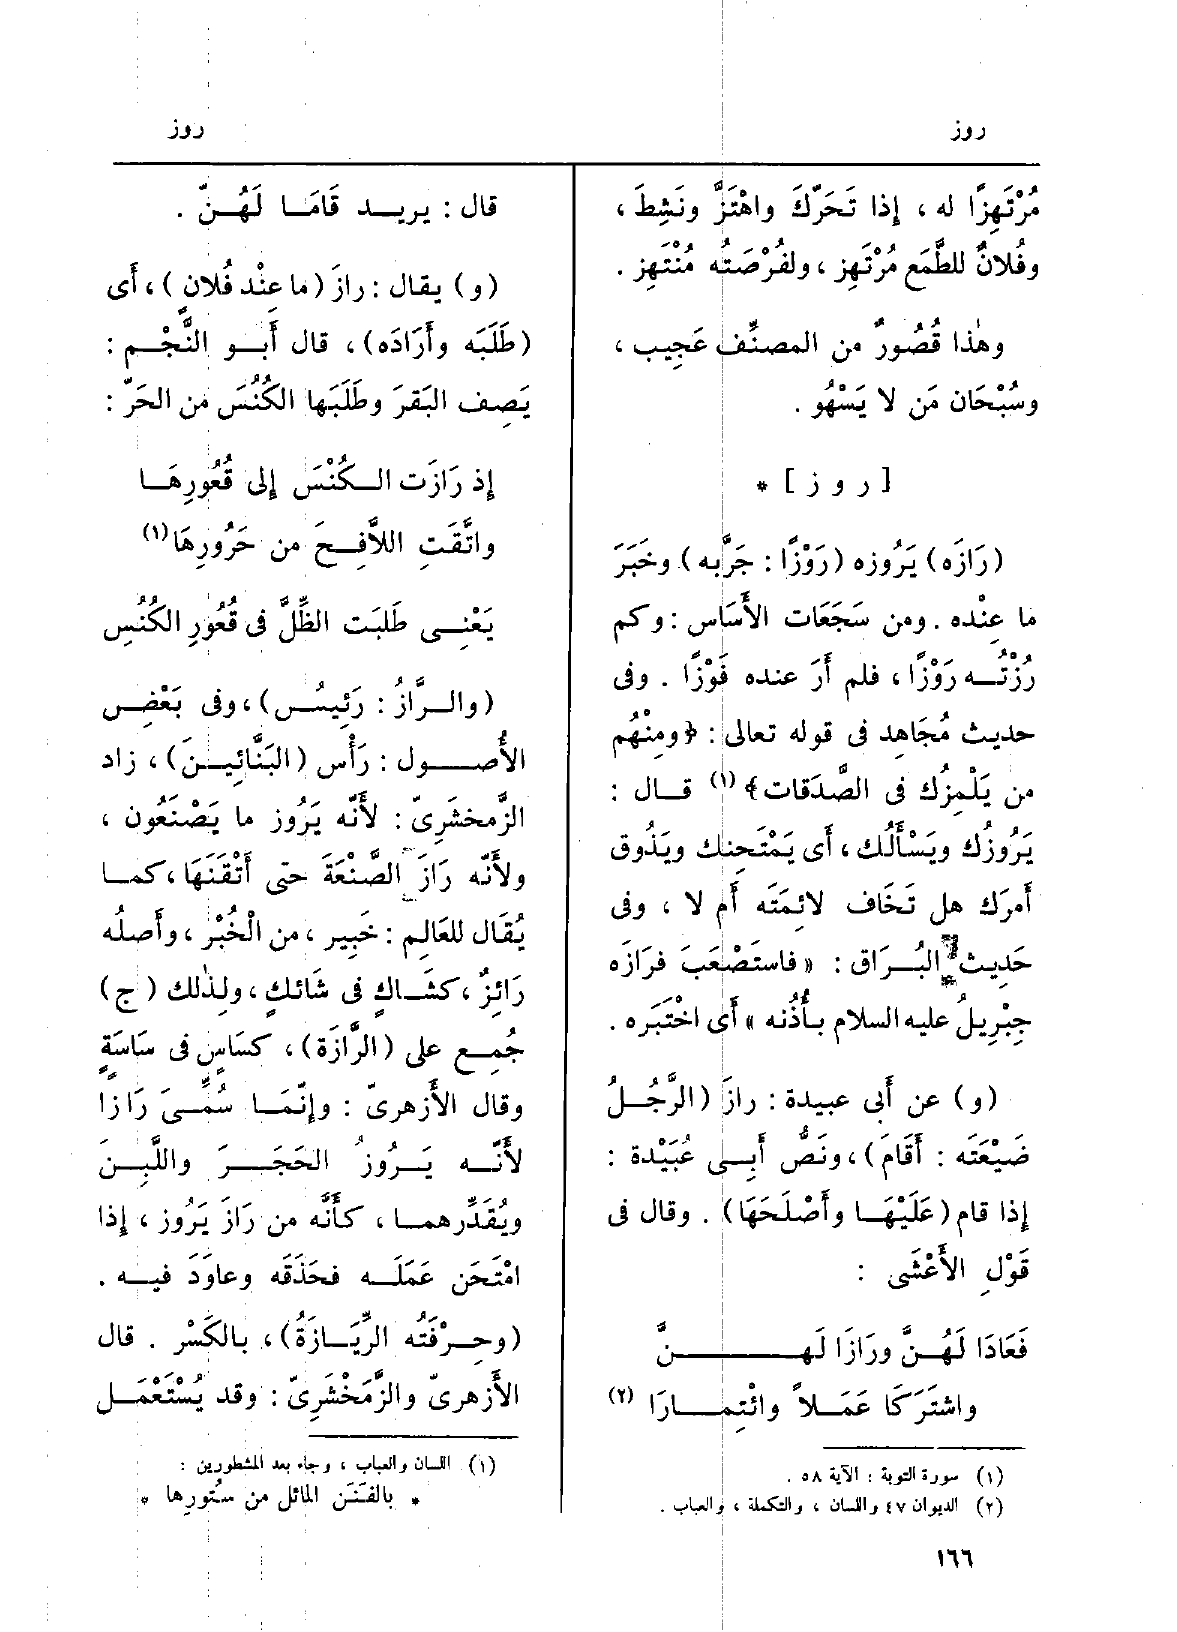 روز
روز
مُرْتَهِزًا له ، إذا تَحَرّكَ واهْتَزَّ ونَشِطَ ،
وفُلانٌ للطَّمَع مُرْتَهِز ، ولفُرْصَتُه مُنْتَهِز .
وهٰذا قُصُورٌ من المصنِّف عَجِيب ،
وسُبْحَان مَن لا يَسْهُو .
[ ر و ز ] *
(رَازَه) يَرُوزه (رَوْزًا : جَرَّبه) وخَبَرَ
ما عِنْده . ومن سَجَعَات الأَسَاس : وكم
رُزْتُــه رَوْزًا ، فلم أَرَ عنده فَوْزًا . وفى
حديث مُجَاهِد فى قوله تعالى : ﴿ومِنْهُم
من يَلْمِزُك فى الصَّدَقات﴾ (١) قــال :
يَرُوزُك ويَسْأَلُك ، أى يَمْتَحِنك ويَذُوق
أَمرَك هل تَخَاف لائِمَتَه أَم لا ، وفى
حَدِيث البُــراق : « فاستَصْعَبَ فرَازَه
جِبْرِيلُ عليه السلام بأُذُنه » أَى اخْتَبَره .
(و) عن أَبى عبيدة : رازَ (الرَّجُــلُ
ضَيْعَتَه : أَقَامَ) ، ونَصُّ أَبِــى عُبَيْدة :
إذا قام (عَلَيْهَــا وأَصْلَحَهَا) . وقال فى
قَوْلِ الأَعْشَى :
فَعَادَا لَهُــنَّ ورَازَا لَهــــــــنَّ
واشتَرَكَا عَمَــلاً وائْتِمــارَا (٢)
(١) سورة التوبة : الآية ٥٨ .
(٢) الديوان ٤٧ واللسان ، والتكملة ، والعباب .
قال : يريــد قَامَــا لَهُــنّ .
(و) يقال : رازَ (ما عِنْد فُلان) ، أَى
(طَلَبَه وأَرَادَه) ، قال أَبــو النَّجْــم :
يَصِف البَقرَ وطَلَبَها الكُنُسَ من الحَرّ :
إذ رَازَت الــكُنْسَ إلى قُعُورِهَــا
واتَّقَتِ اللاَّفِــحَ من حَرُورِهَا (١)
يَعْنِــى طَلَبَت الظِّلَّ فى قُعُورِ الكُنُسِ
(والــرَّازُ : رَئِيسُ) ، وفى بَعْضِ
الأُصــول : رَأْس (البَنَّائِيــنَ) ، زاد
الزَّمخشَرِىّ : لأَنّه يَرُوز ما يَصْنَعُون ،
ولأَنّه رَازَ الصَّنْعَةَ حتى أَتْقَنَهَا ، كمــا
يُقَال للعَالِم : خَبِير ، من الْخُبْر ، وأَصلُه
رَائِزٌ ، كشَــاكٍ فى شَائك ، ولِذٰلك (ج)
جُمِــع على (الرَّازَة) ، كسَاسٍ فى سَاسَةٍ
وقال الأَزهرىّ : وإنّمَــا سُمِّىَ رَازا
لأَنّــه يَــرُوزُ الحَجَــرَ واللَّبِــنَ
ويُقَدِّرهمــا ، كأَنَّه من رَازَ يَرُوز ، إذا
امْتَحَن عَمَلَــه فحَذَقَه وعاوَدَ فيــه .
(وحِــرْفَتُه الرِّيَــازَةُ) ، بالكَسْر . قال
الأَزهرىّ والزَّمَخْشَرِىّ : وقد يُسْتَعْمَــل
(١) اللسان والعباب ، وجاء بعد المشطورين :
* بالفَنَنِ المائل من سُتُورِها *
١٦٦